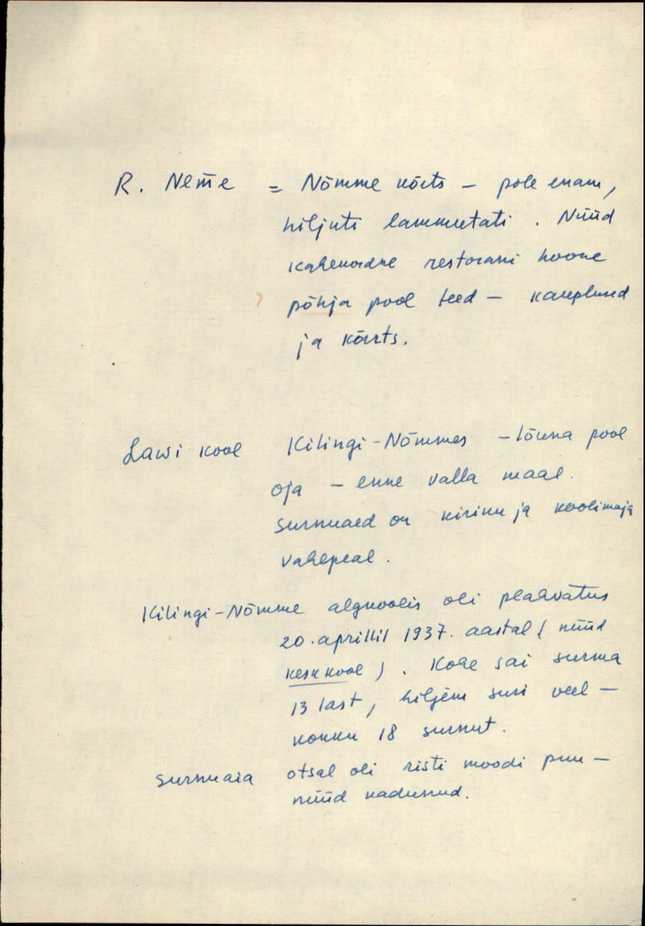 R. Neme = Nõmme kõrts – pole enam,
hiljuti lammutati. Nüüd
kahekordne restorani hoone
põhja pool teed – kauplused
ja kõrts.
Lawi kool Kilingi-Nõmmes – lõuna pool
oja – enne valla maal.
Surnuaed on kiriku ja koolimaja
vahepeal.
Kilingi-Nõmme algkoolis oli plahvatus
20. aprillil 1937. aastal (nüüd
keskkool). Kohe sai surma
13 last, hiljem suri veel –
kokku 18 surnut.
Surnuaia otsal oli risti moodi puu –
nüüd kadunud.